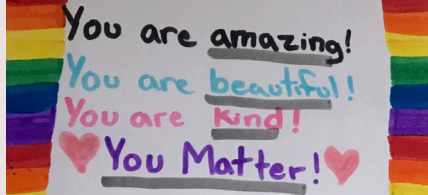 You are amazing!
You are beautiful!
You are kind!
You Matter!